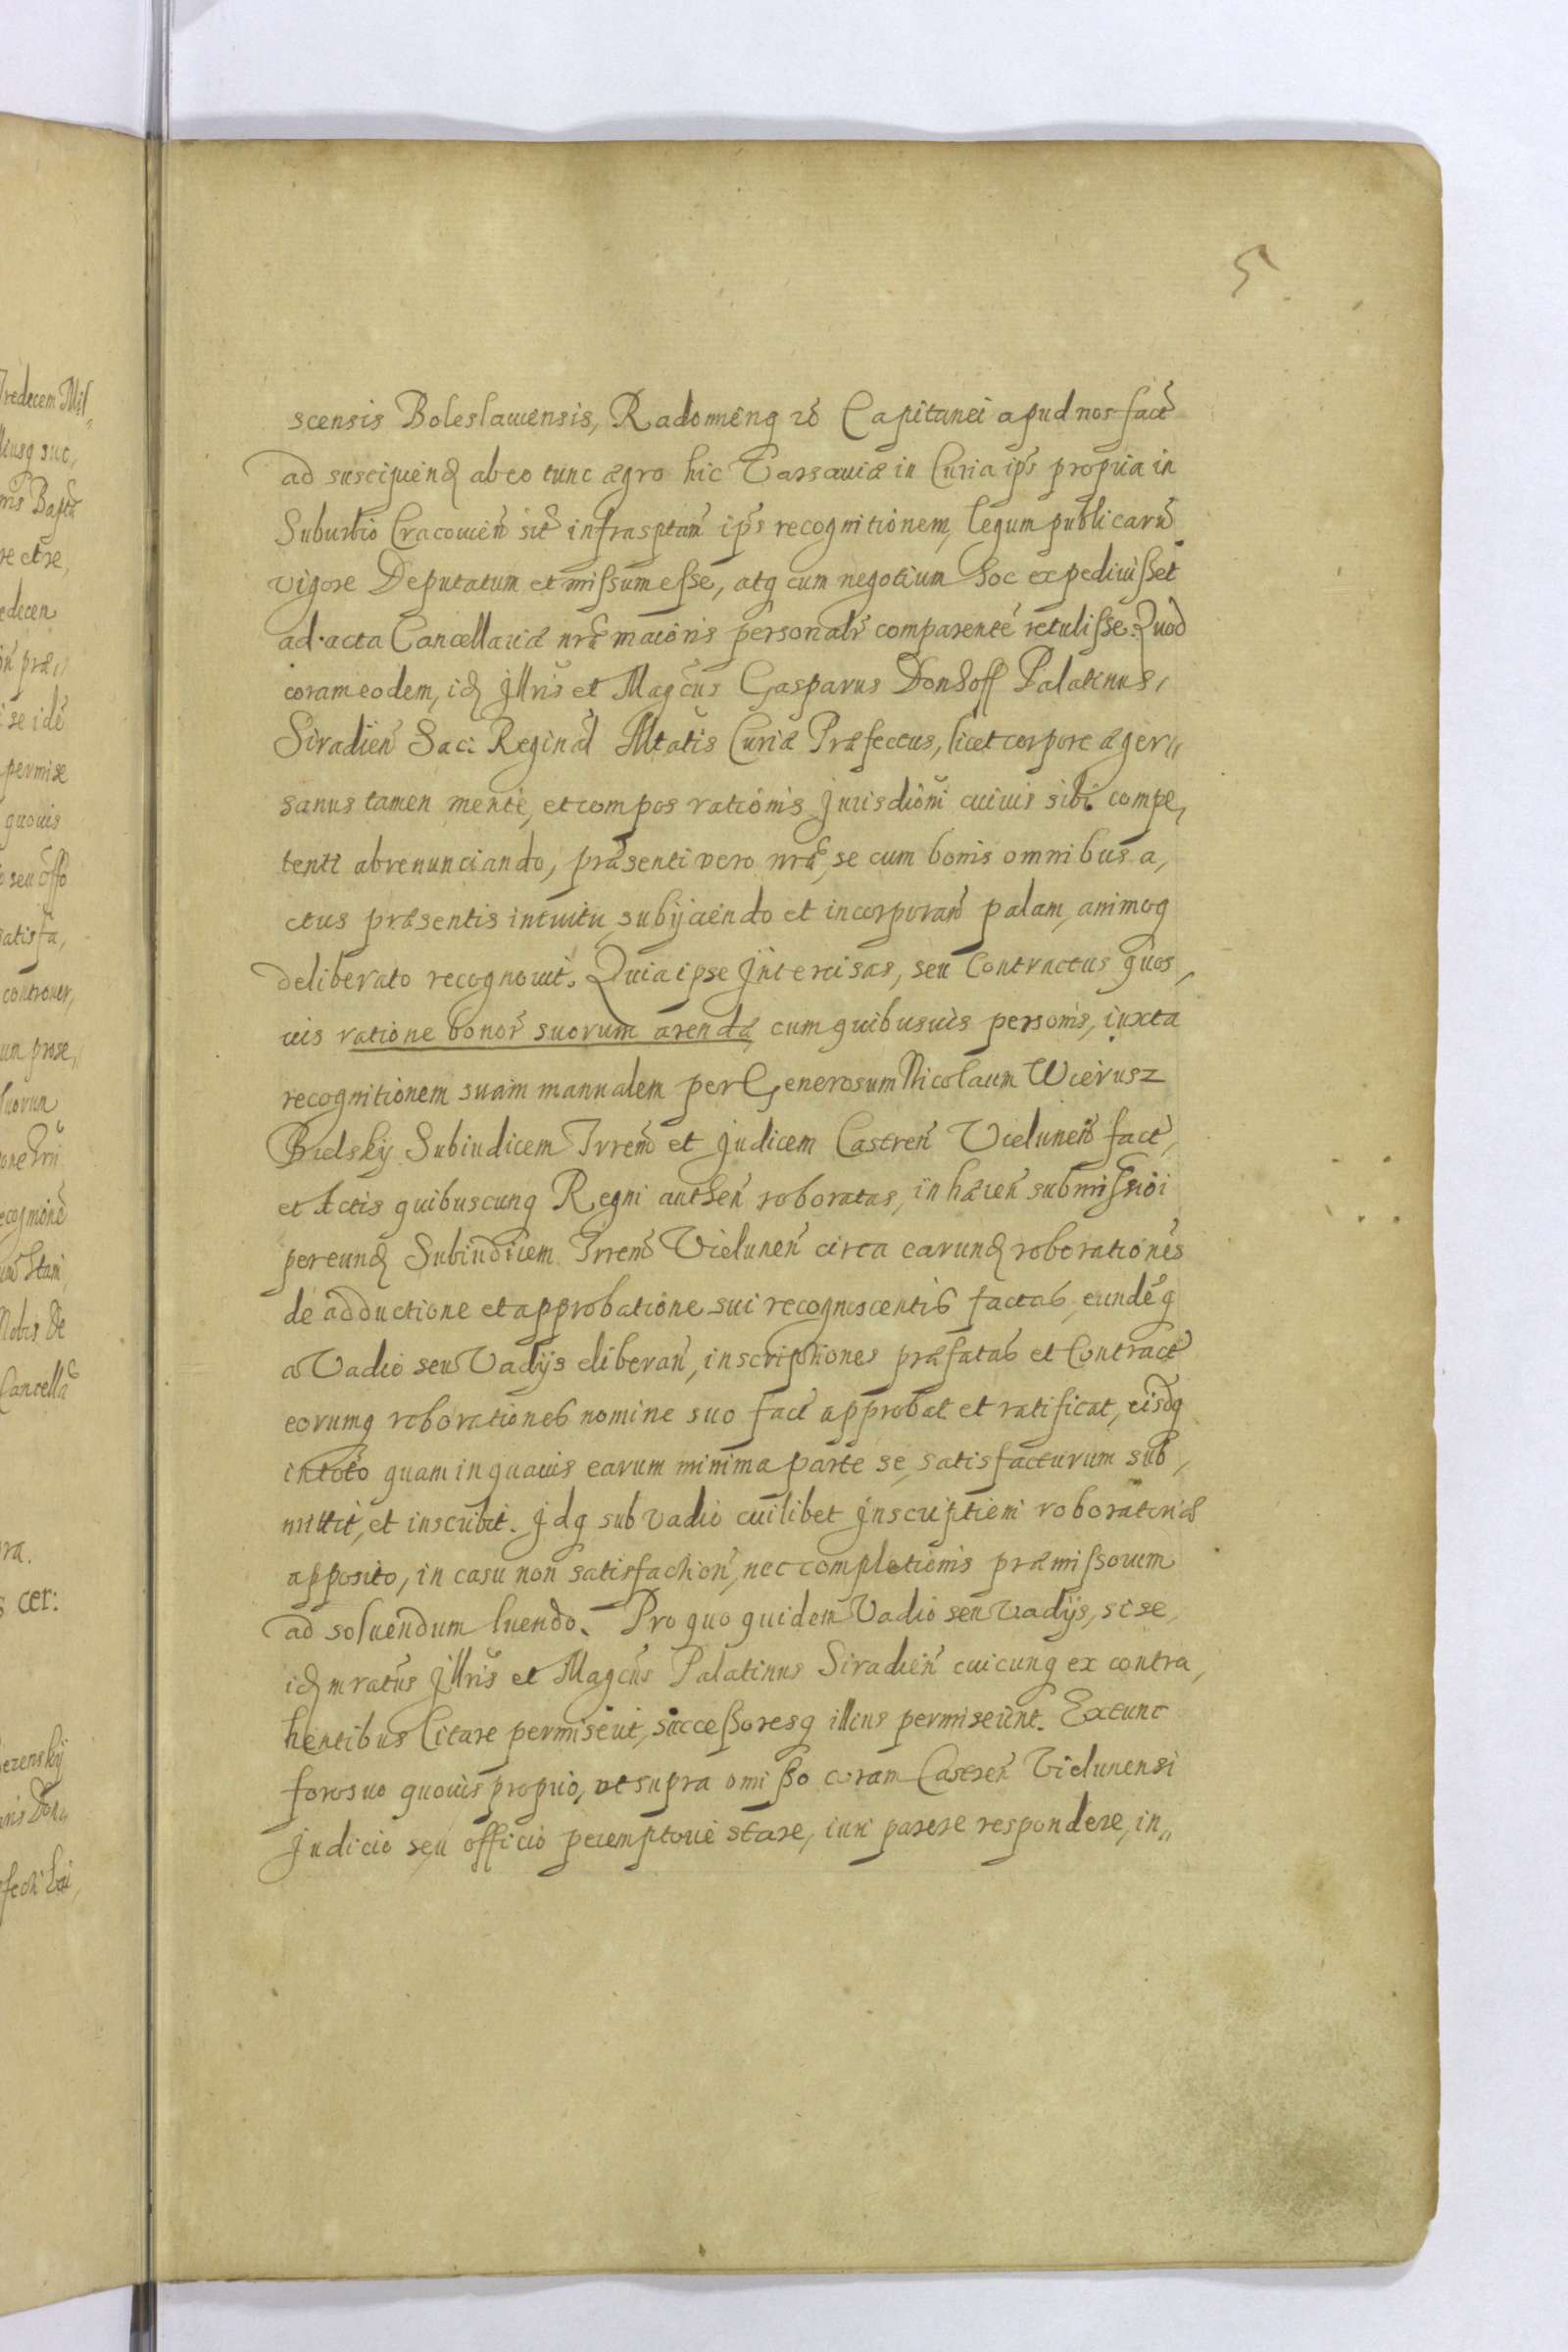 5
scensis Boleslauensis, Radomeng ꝛc Capitanei apud nos fact
ad suscipiend ab eo tunc ægro hic Varsauiæ in Curia ips propria in
Suburbio Cracouien sit infrasptam ips recognitionem, legum publicarum
vigore Deputatum et missum esse, atq cum negotium hoc expediuisset
ad acta Cancellariæ nræ maioris personalr comparente retulisse. Quod
coram eodem, id Jllris et Magcus Gasparus Donhoff Palatinus,
Siradien Sac: Reginal Mtatis Curiæ Præfectus, licet corpore æger,,
sanus tamen mente, et compos rationis Jurisdioni cuiuis sibi compe,
tenti abrenunciando, præsenti vero nræ, se cum bonis omnibus a,
ctus præsentis intuitu subijciendo et incorporan palam, animoq
deliberato recognouit. Quia ipse Jntercisas, seu Contractus quos,
uis ratione bonor suorum arendæ, cum quibusuis personis, iuxta
recognitionem suam manualem per Generosum Nicolaum Wierusz
Bielskij Subiudicem Trren et Judicem Castren Vielunen fact,
et Actis quibuscunq Regni authen roboratas, inhæren submissioi
per eund Subiudicem Trren Vielunen circa earund roborationes
de adductione et approbatione sui recognoscentis factas, eundeq
a Vadio seu Vadijs eliberan, inscriptiones præfatas et Contract
eorumq roborationes nomine suo fact approbat et ratificat, eisdq
in toto quam in quauis earum minima parte se satisfacturum sub,
mittit, et inscribit. Jdq sub vadio cuilibet Jnscriptioni roborationis
apposito, in casu non satisfaction, nec completionis præmissorum
ad soluendum luendo. Pro quo quidem Vadio seu vadijs, si se
id mratus Jllris et Magcus Palatinus Siradien cuicunq ex contra,
hentibus Citare permiserit, successoresq illius permiserint. Extunc
foro suo quouis proprio, ut supra omisso coram Castren Vielunensi
Judicio seu officio peremptorie stare, iuri parere respondere, in,,